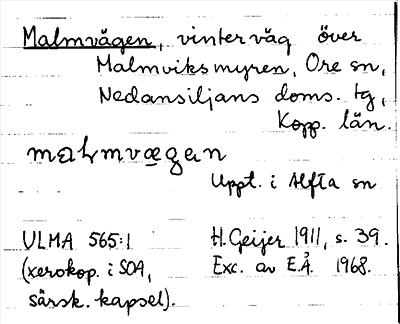 Malmvägen, vinterväg över
Malmviksmyren, Ore sn,
Nedansiljans doms. tg,
Kopp. län.
malmvægan
Uppt. i Alfta sn
ULMA 565:1 H. Geijer 1911, s. 39.
(xerokop. i SOA, Exc. av E.Å. 1968.
särsk. kapsel).